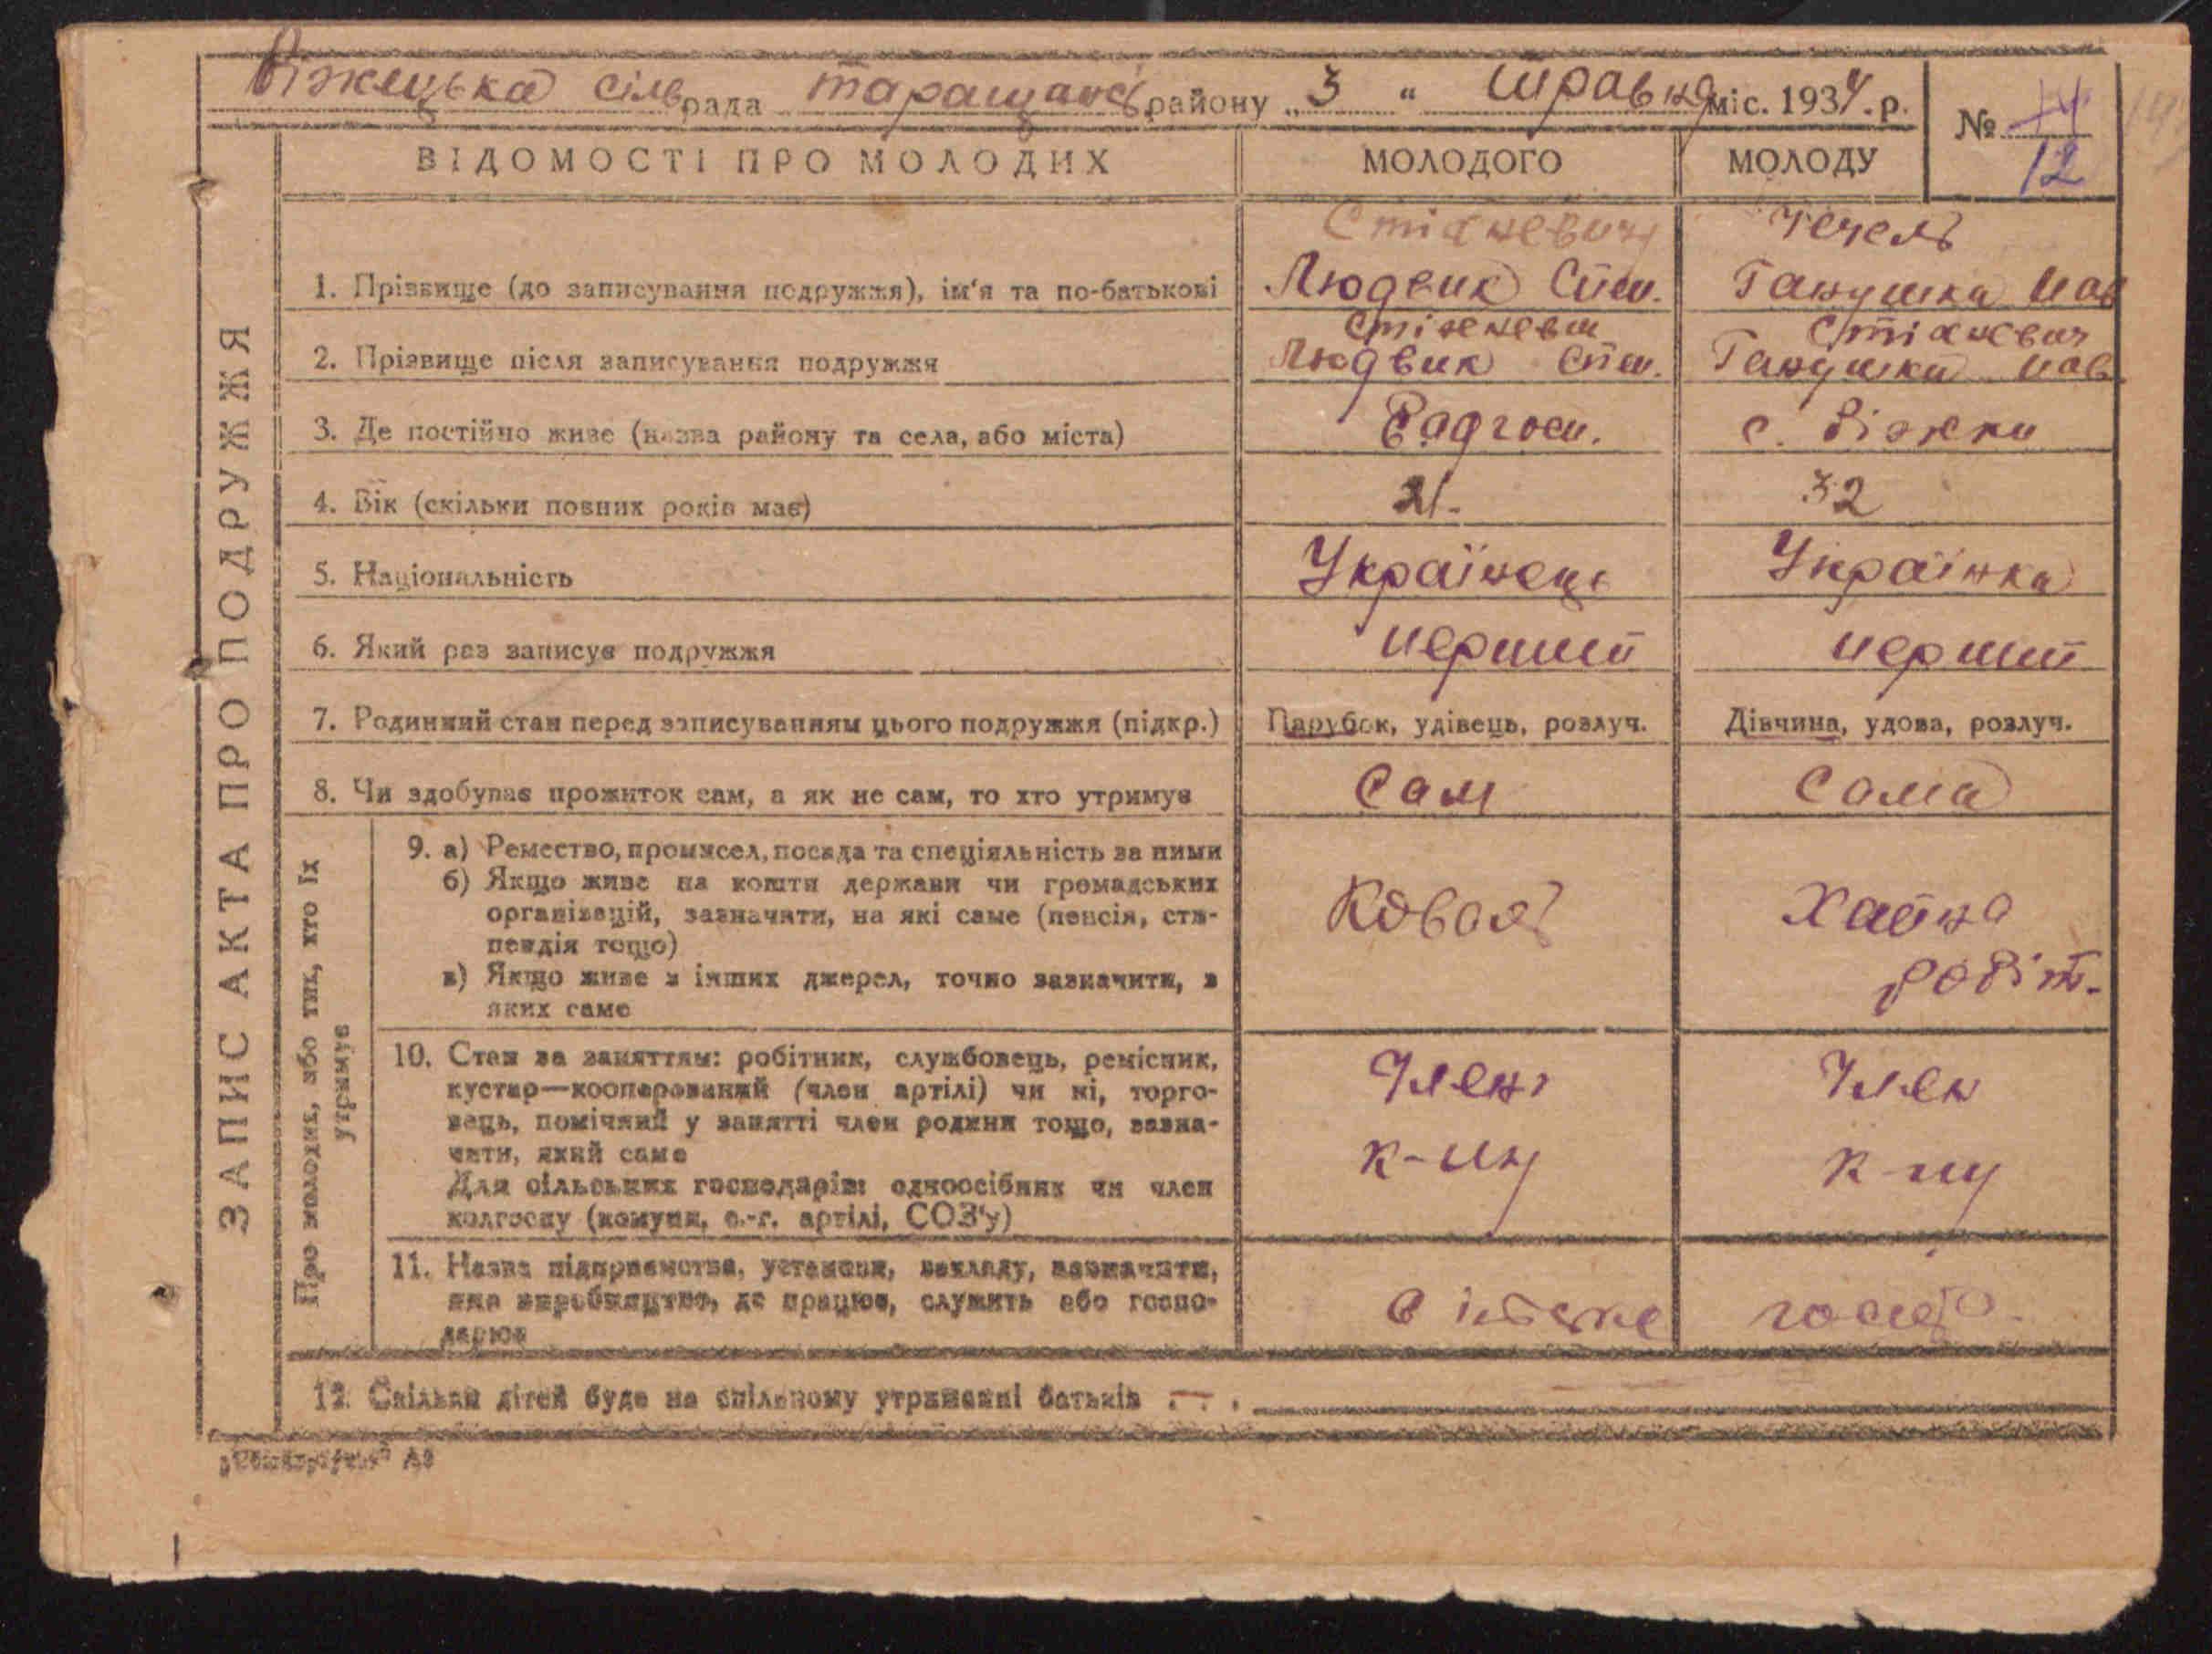 Віжецька сільрада таращанс. району „3“ травня міс. 1934 р.
№ 14
12
ВІДОМОСТІ ПРО МОЛОДИХ МОЛОДОГО МОЛОДУ
Стіхневич Течель
1. Прізвище (до записування подружжя), ім'я та по-батькові Людвик Степ. Ганушка Пав
Стіхневич Стіхневич
2. Прізвище після записування подружжя Людвик Степ. Ганушка Пав.
3. Де постійно живе (назва району та села, або міста) Радгосп. с. Віжки
4. Вік (скільки повних років має) 21. 32
5. Національність Українець Українка
6. Який раз записує подружжя перший перший
7. Родинний стан перед записуванням цього подружжя (підкр.) Парубок, удівець, розлуч. Дівчина, удова, розлуч.
8. Чи здобуває прожиток сам, а як не сам, то хто утримує Сам Сама
ЗАПИС АКТА ПРО ПОДРУЖЖЯ
Про молодих, або тих, хто їх утримує
9. а) Ремество, промисел, посада та спеціяльність за ними
б) Якщо живе на кошти держави чи громадських
організацій, зазначити, на які саме (пенсія, сти-
пендія тощо)
в) Якщо живе з інших джерел, точно зазначити, з
яких саме
Коваль Хатня
робіт.
10. Стан за заняттям: робітник, службовець, ремісник,
кустар—кооперований (член артілі) чи ні, торго-
вець, помічний у занятті член родини тощо, зазна-
чити, який саме
Для сільських господарів: одноосібник чи член
колгоспу (комуни, с.-г. артілі, СОЗ'у)
Член Член
к-пу к-пу
11. Назва підприємства, установи, закладу, зазначити,
яке виробництво, де працює, служить або госпо-
дарює
12. Скільки дітей буде на спільному утриманні батьків —